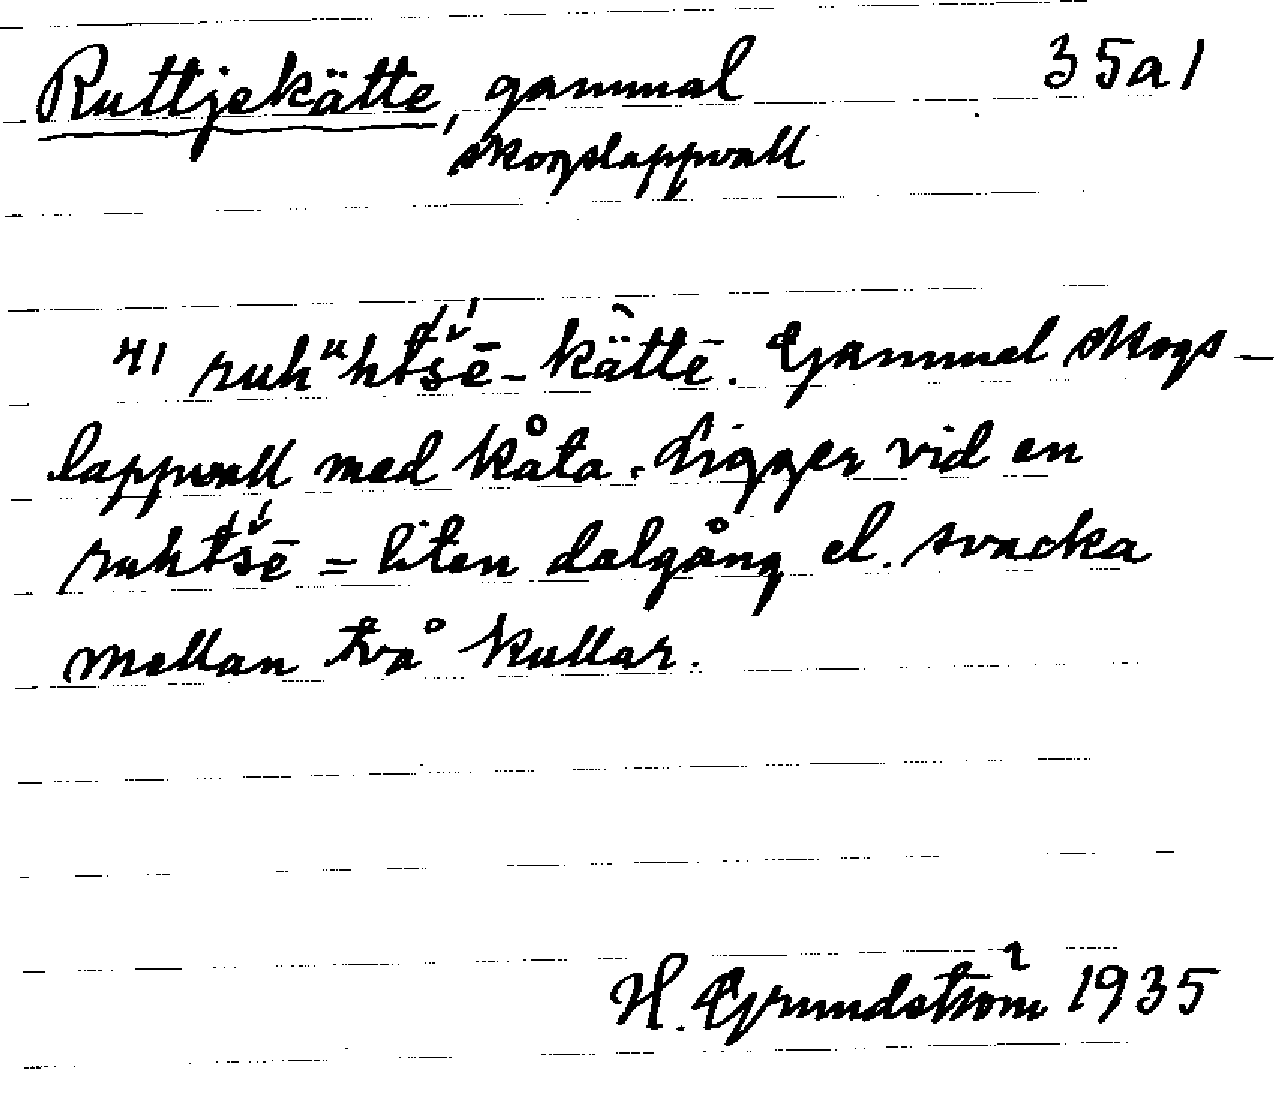 Ruttjekätte, gammal 35a1
skogslappvall
41 ruhᵘhtsē-kättē. Gammal skogs-
lappvall med kåta. Ligger vid en
ruhtsē = liten dalgång el. svacka
mellan två kullar.
H. Grundström 1935